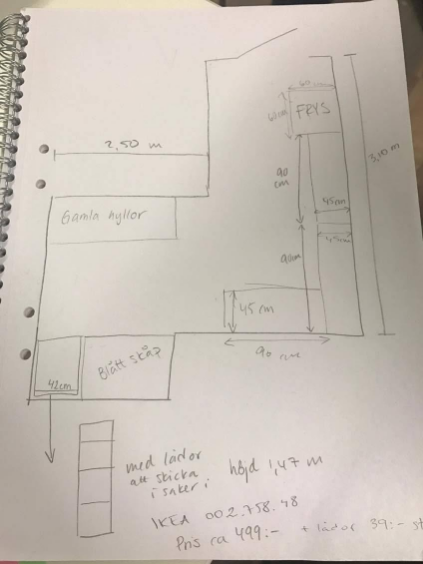 60 cm
60cm
FRYS
2,50 m
3,10 m
90
cm
45cm
Gamla hyllor
45cm
90cm
45 cm
90 cm
Blått skåp
42cm
med lådor
att sticka
i saker i
höjd 1,47 m
IKEA 002.758.48
Pris ca 499:- + lådor 39:- st